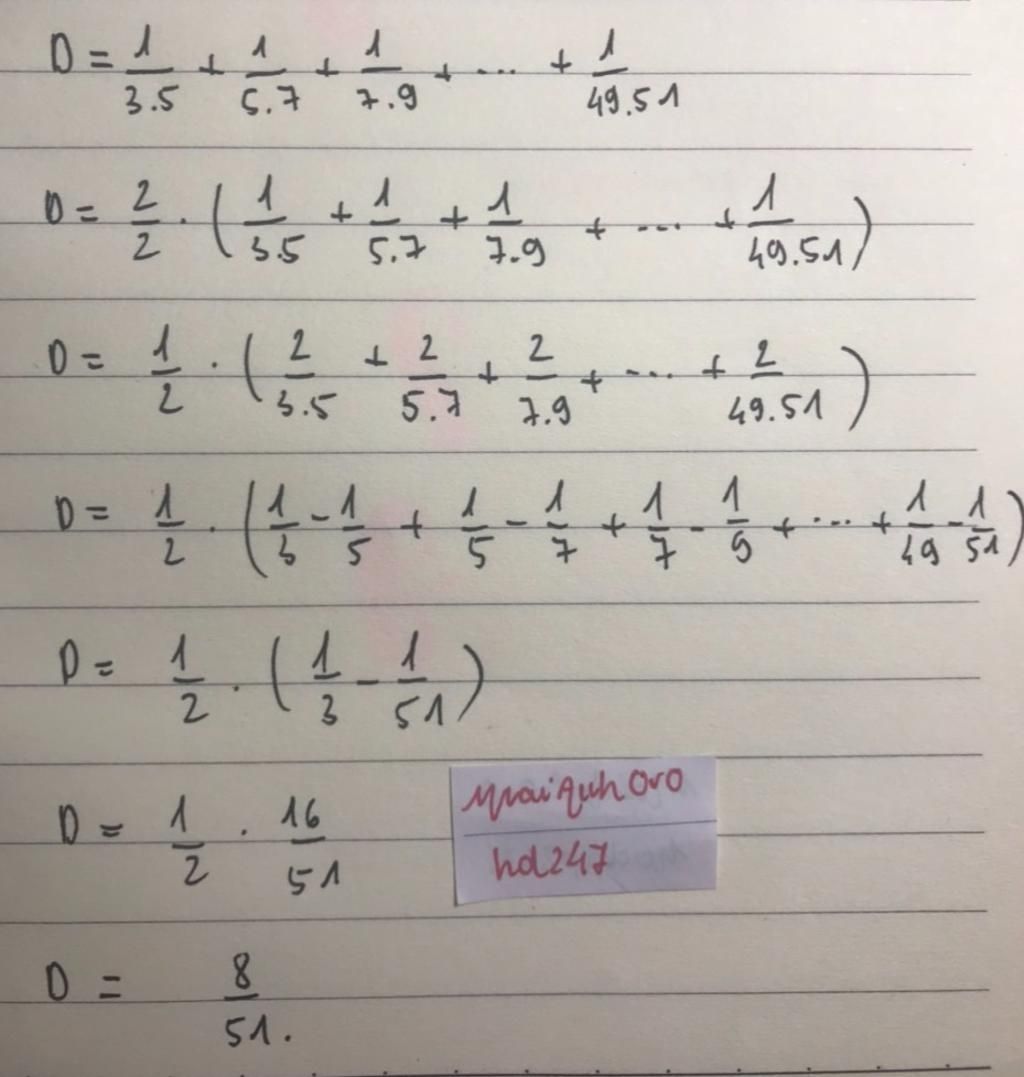 D = 1/3.5 + 1/5.7 + 1/7.9 + ... + 1/49.51
D = 2/2 . (1/3.5 + 1/5.7 + 1/7.9 + ... + 1/49.51)
D = 1/2 . (2/3.5 + 2/5.7 + 2/7.9 + ... + 2/49.51)
D = 1/2 . (1/3 - 1/5 + 1/5 - 1/7 + 1/7 - 1/9 + ... + 1/49 - 1/51)
D = 1/2 . (1/3 - 1/51)
D = 1/2 . 16/51
hd247
D = 8/51.